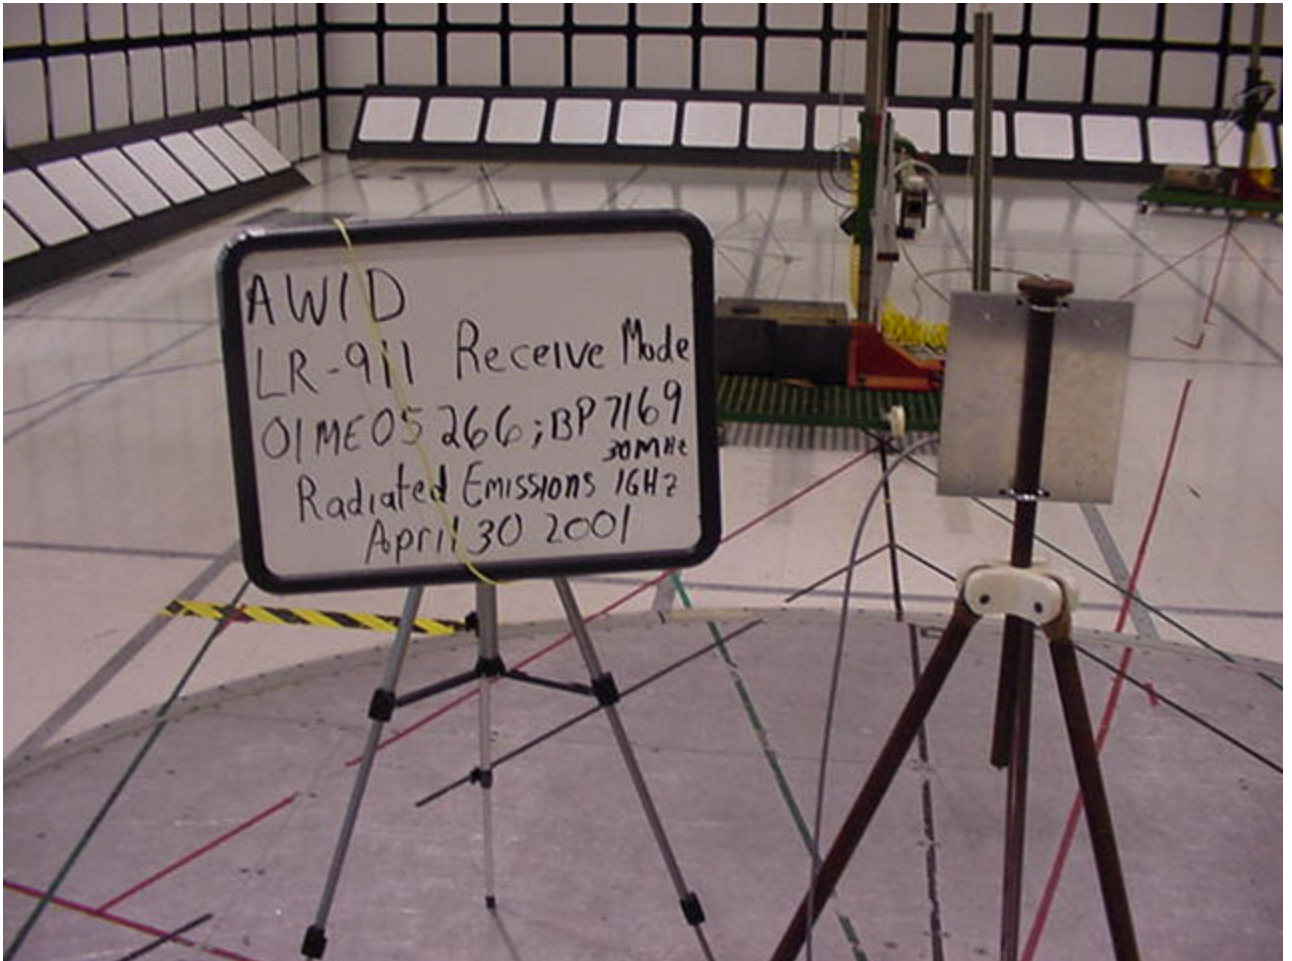 AWID
LR-911 Receive Mode
01ME05266;BP7169
30MHz
Radiated Emissions 1GHz
April 30 2001